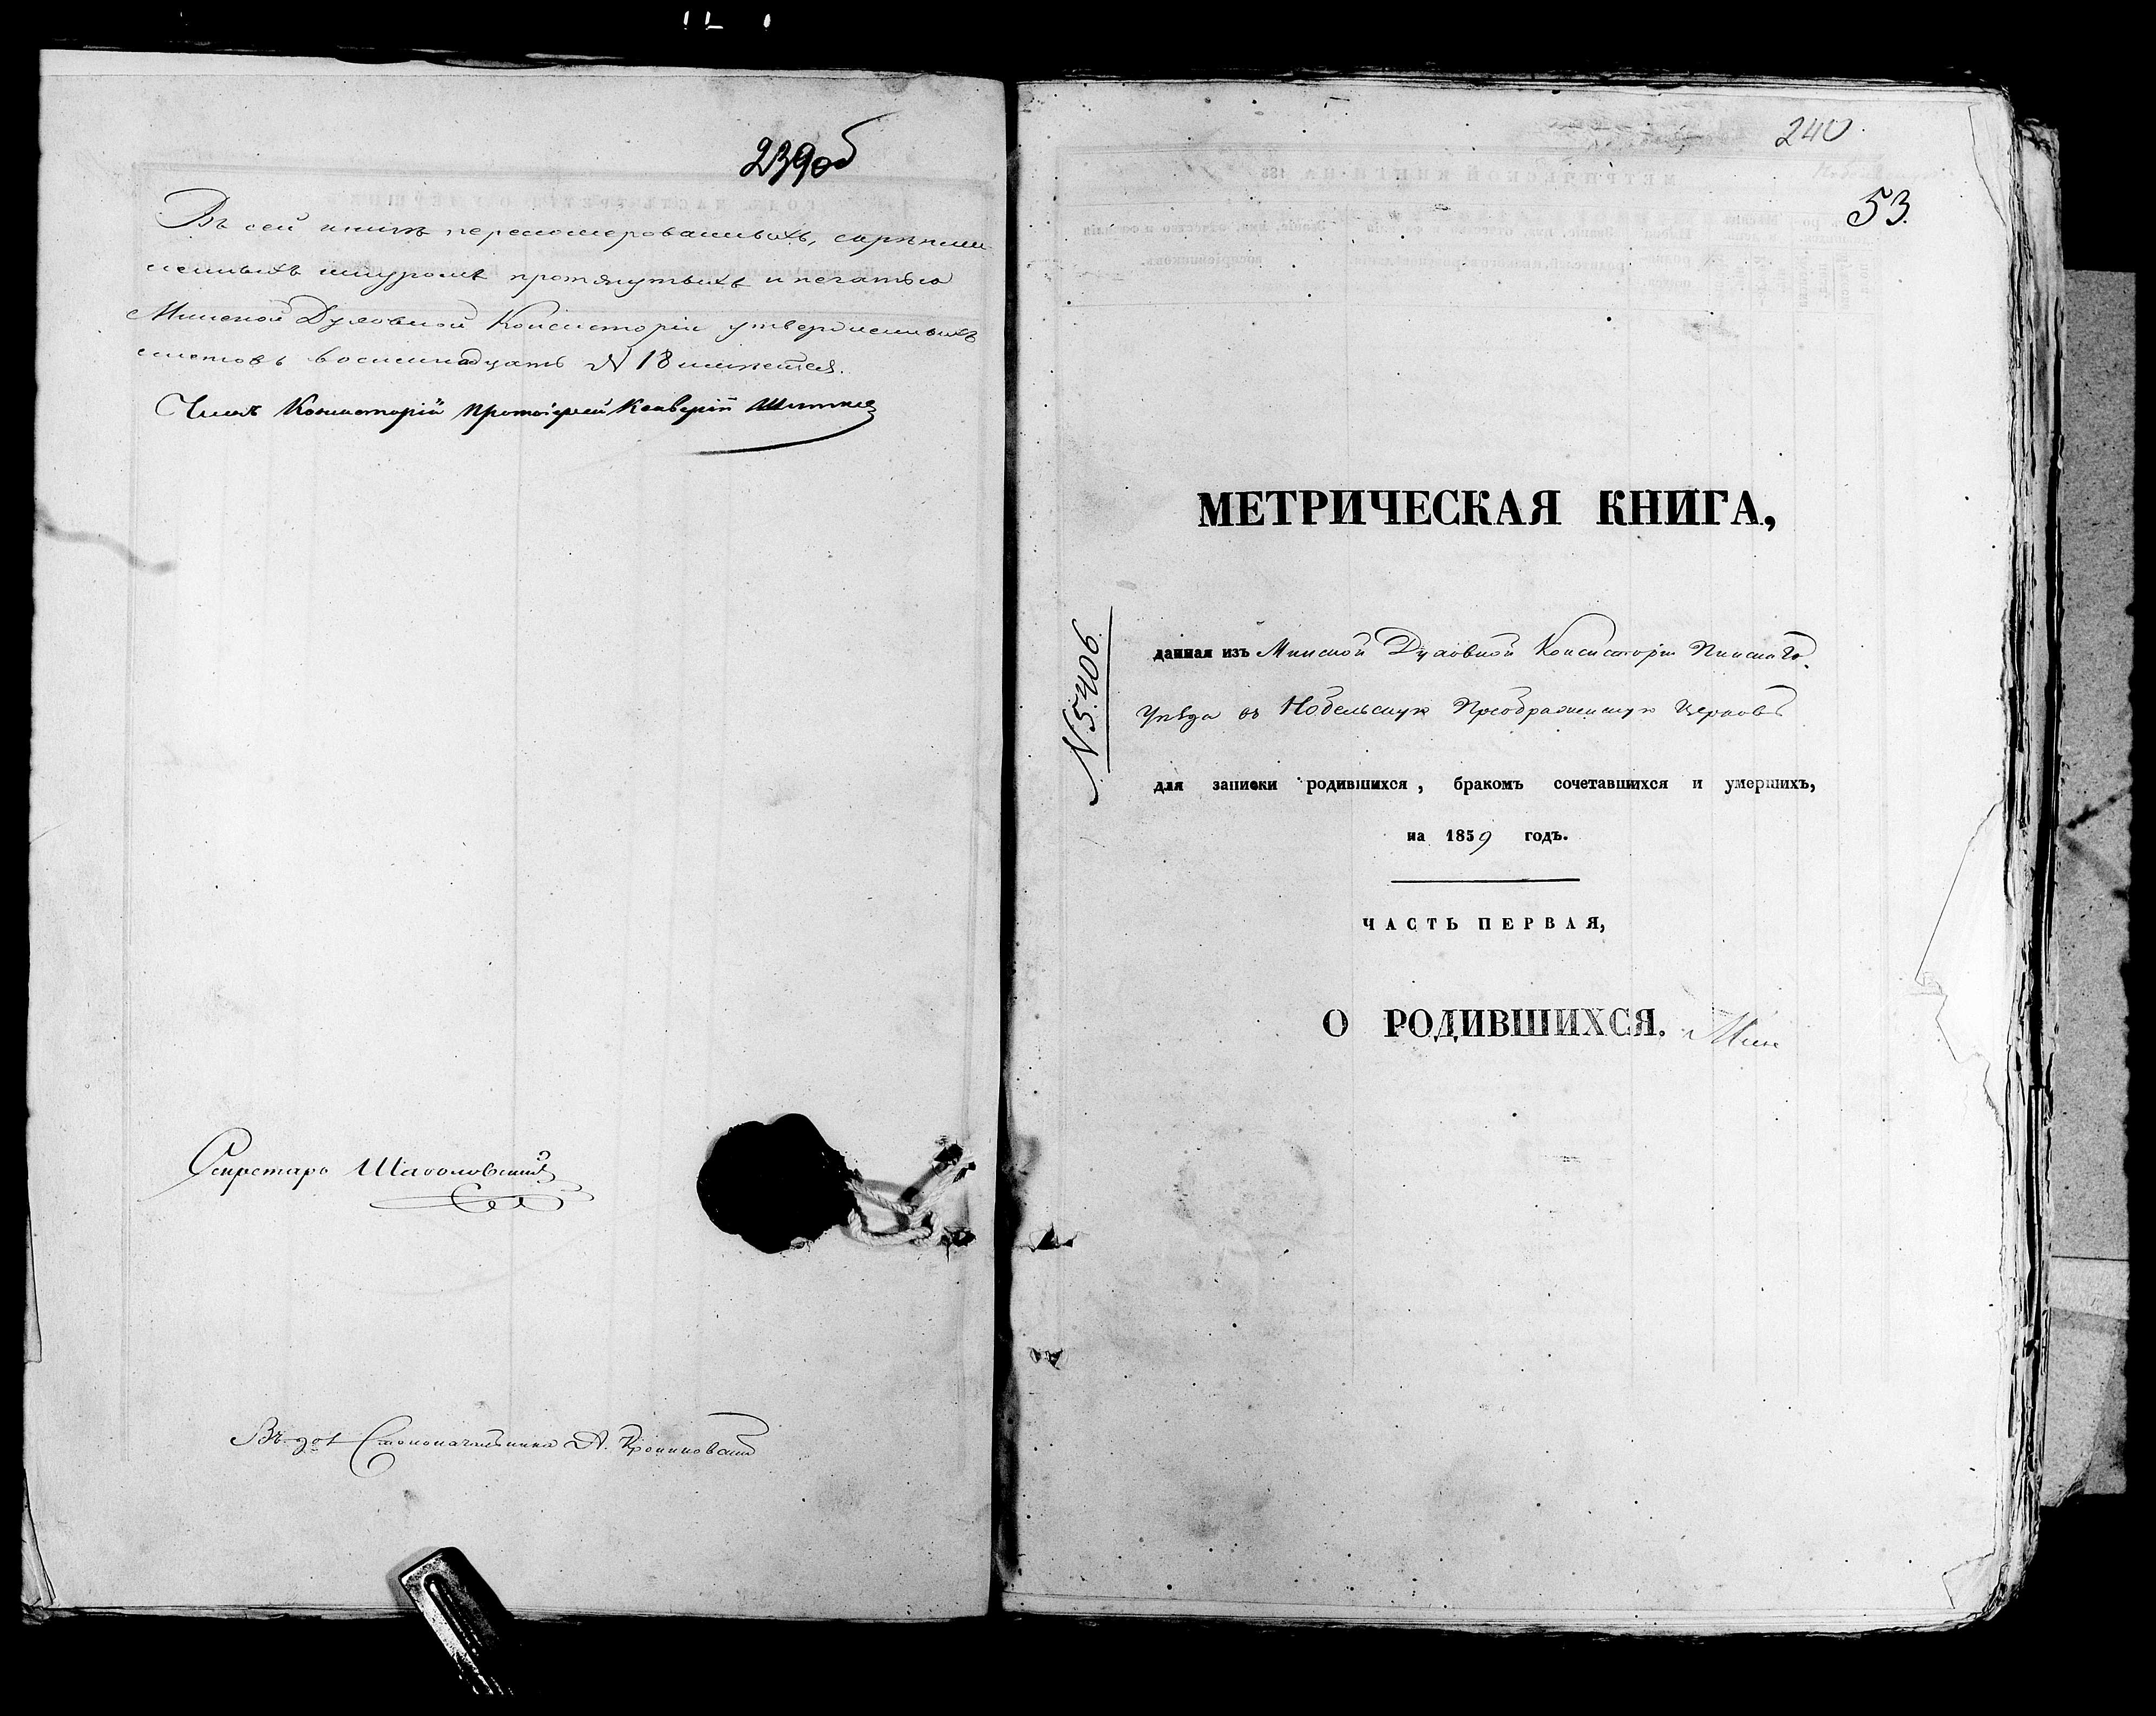 239об
Въ сей книгѣ перенумерованныхъ, скрѣплен
ленныхъ шнуромъ протянутыхъ и печатью
Минской Духовной Консисторіи утвержденныхъ
листовъ восемнадцать N 18 имѣется.
Членъ Консисторіи Протоіерей
Секретарь
Столоначальника А.
240
53.
МЕТРИЧЕСКАЯ КНИГА,
N 5406.
данная изъ Минской Духовной Консисторіи Пинскаго
Уѣзда въ Нобельскую Преображенскую Церковь
для записки родившихся, бракомъ сочетавшихся и умершихъ,
на 1859 годъ.
ЧАСТЬ ПЕРВАЯ,
О РОДИВШИХСЯ. Мин